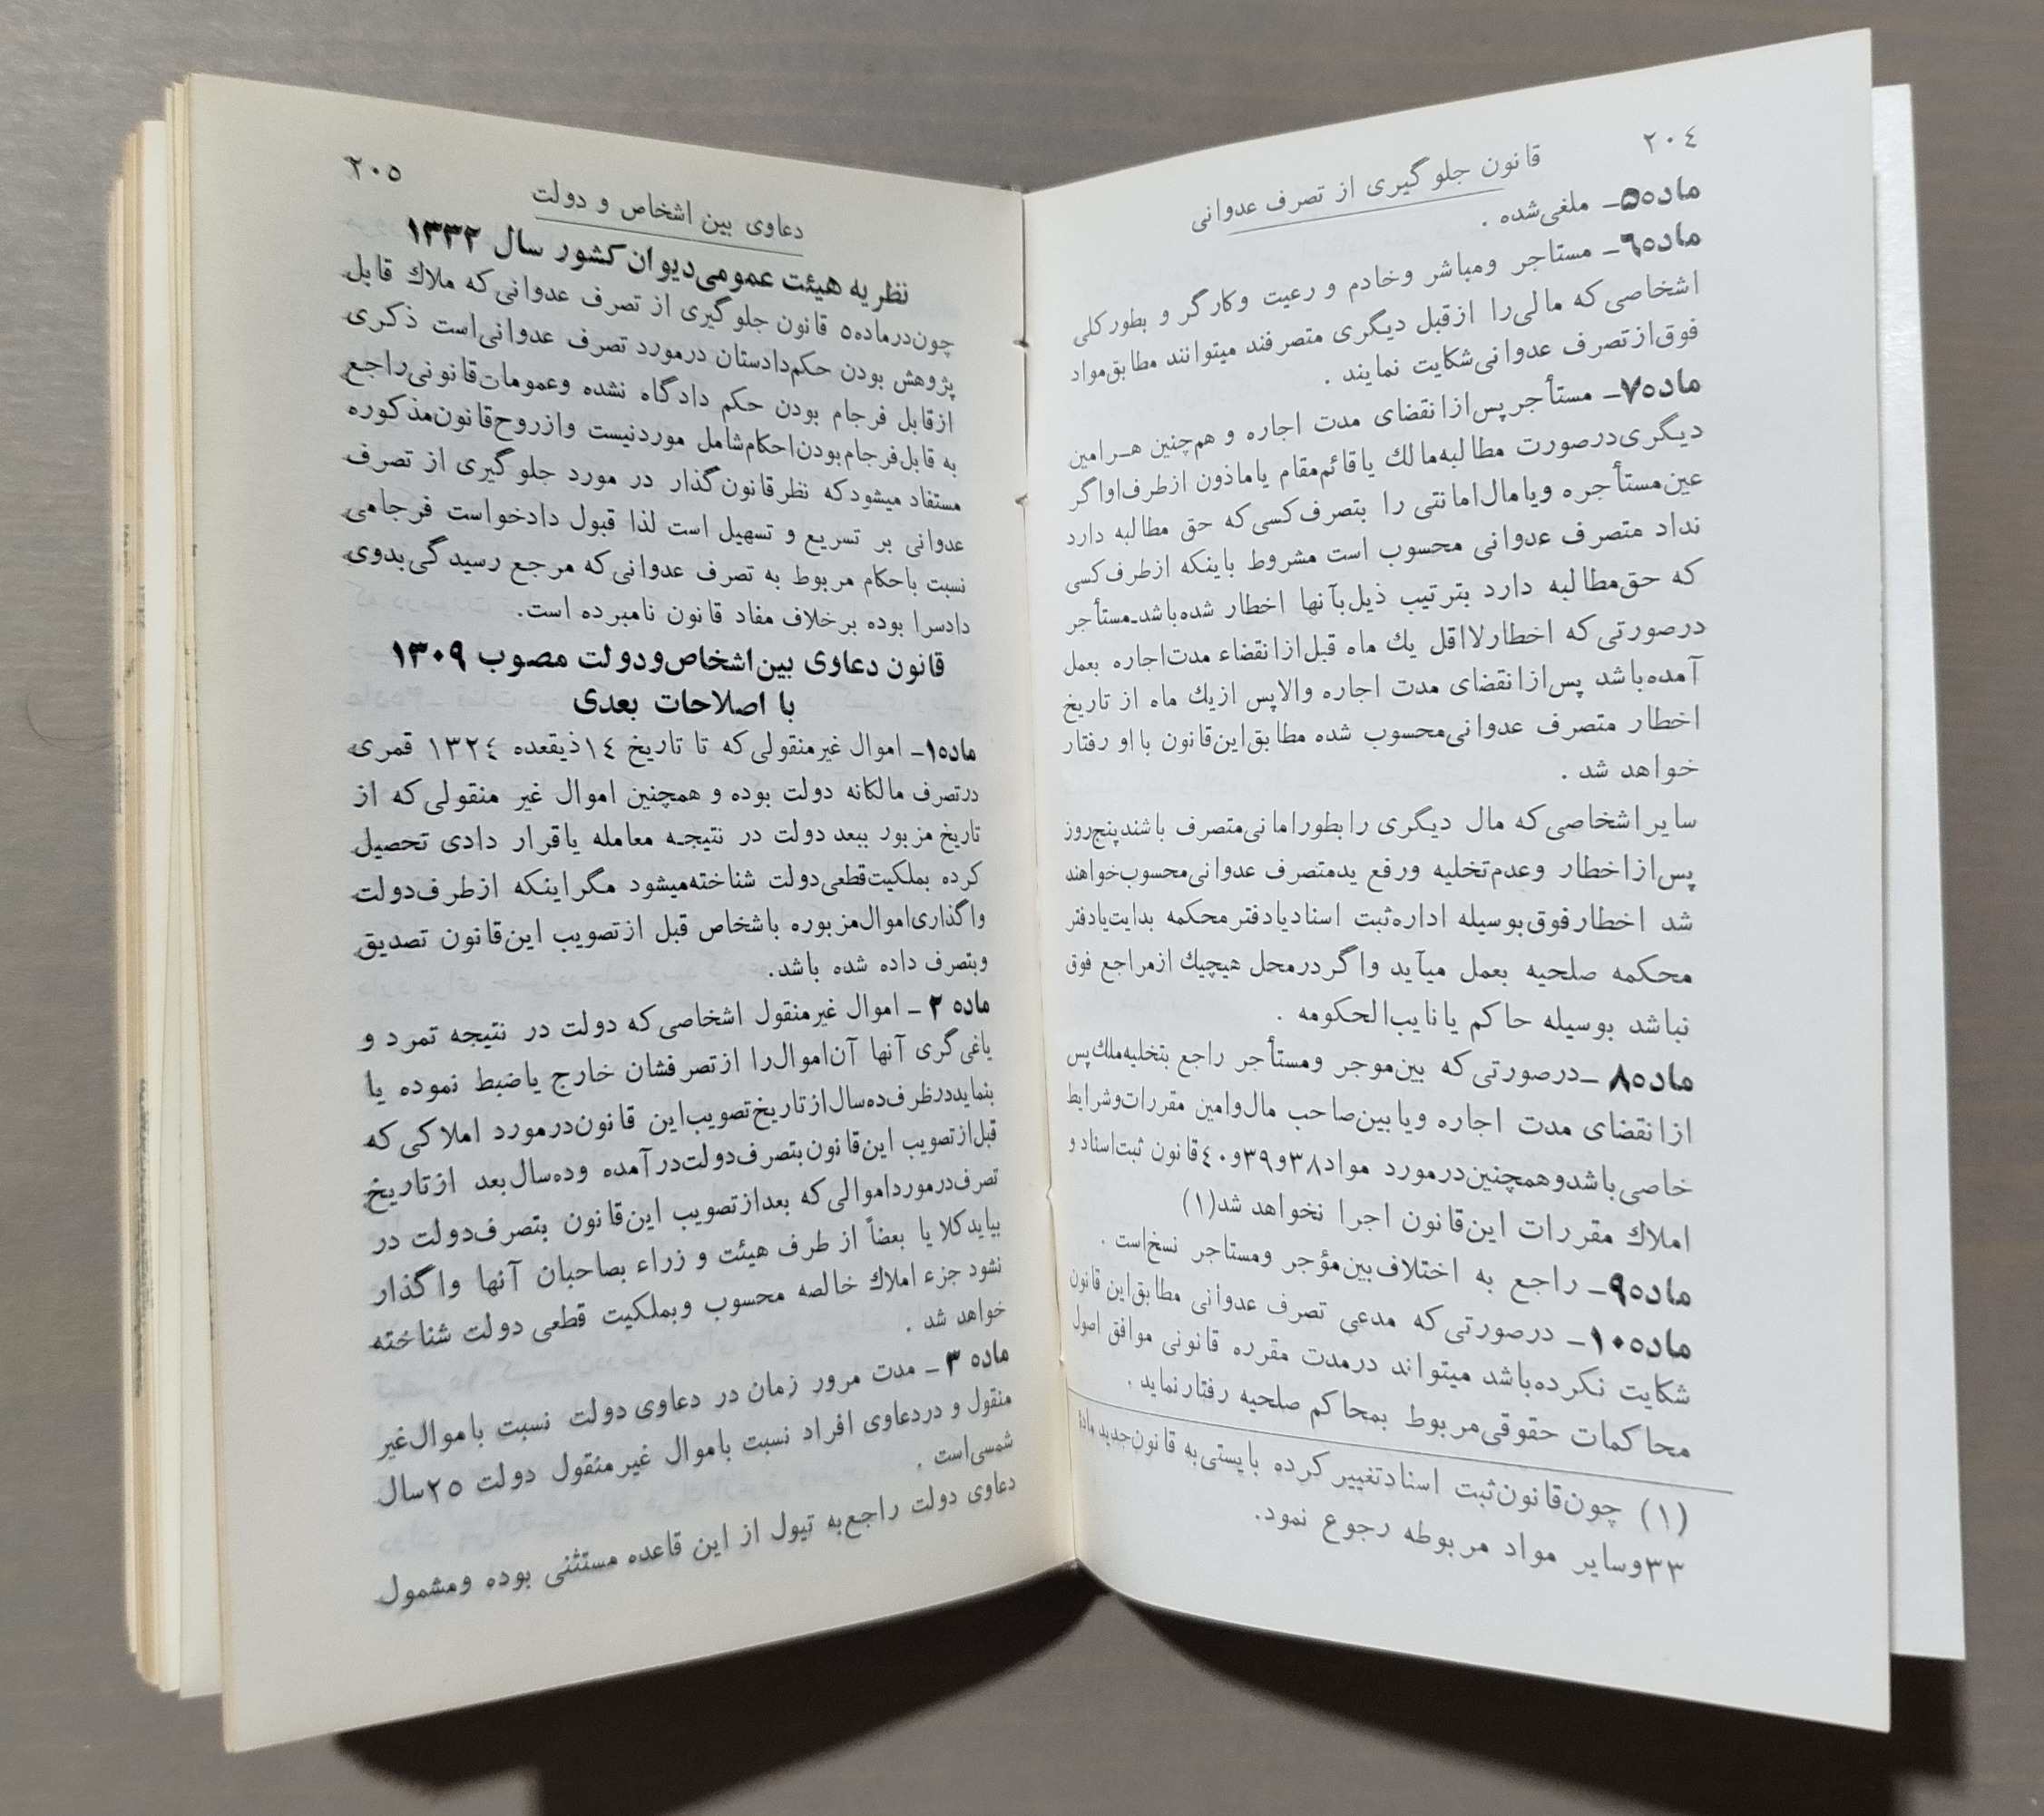 ٢٠٤
قانون جلوگیری از تصرف عدوانی
ماده۵ـ ملغی‌شده .
ماده۶ـ مستاجر ومباشر وخادم و رعیت وکارگر و بطورکلی
اشخاصی‌که مالی‌را ازقبل دیگری متصرفند میتوانند مطابق‌مواد
فوق‌ازتصرف عدوانی‌شکایت نمایند .
ماده۷ـ مستأجرپس‌ازانقضای مدت اجاره و هم‌چنین هـرامین
دیگری‌درصورت مطالبه‌مالك یاقائم‌مقام یاماذون ازطرف‌اواگر
عین‌مستأجره ویامال‌امانتی را بتصرف‌کسی‌که حق مطالبه دارد
نداد متصرف عدوانی محسوب است مشروط باینکه ازطرف‌کسی
که حق‌مطالبه دارد بترتیب ذیل‌بآنها اخطار شده‌باشد.مستأجر
درصورتی‌که اخطارلااقل یك ماه قبل‌ازانقضاء مدت‌اجاره بعمل
آمده‌باشد پس‌ازانقضای مدت اجاره والاپس ازیك ماه از تاریخ
اخطار متصرف عدوانی‌محسوب شده مطابق‌این‌قانون بااو رفتار
خواهد شد .
سایراشخاصی‌که مال دیگری رابطورامانی‌متصرف باشندپنج‌روز
پس‌ازاخطار وعدم‌تخلیه ورفع یدمتصرف عدوانی‌محسوب‌خواهند
شد اخطارفوق‌بوسیله اداره‌ثبت اسنادیادفترمحکمه بدایت‌یادفتر
محکمه صلحیه بعمل میآید واگردرمحل هیچیك ازمراجع فوق
نباشد بوسیله حاکم یانایب‌الحکومه .
ماده۸ ـدرصورتی‌که بین‌موجر ومستأجر راجع بتخلیه‌ملك‌پس
ازانقضای مدت اجاره ویابین‌صاحب مال‌وامین مقررات‌وشرایط
خاصی‌باشدوهمچنین‌درمورد مواد٣٨و٣٩و٤٠قانون ثبت‌اسناد و
املاك مقررات این‌قانون اجرا نخواهد شد(١)
ماده۹ـ راجع به اختلاف‌بین‌مؤجر ومستاجر نسخ‌است .
ماده۱۰ـ درصورتی‌که مدعی تصرف عدوانی مطابق‌این قانون
شکایت نکرده‌باشد میتواند درمدت مقرره قانونی موافق اصول
محاکمات حقوقی‌مربوط بمحاکم صلحیه رفتارنماید .
(١) چون‌قانون‌ثبت اسنادتغییرکرده بایستی‌به قانون‌جدید مادهٔ
٣٣وسایر مواد مربوطه رجوع نمود.
٢٠٥
دعاوی بین اشخاص و دولت
نظریه هیئت عمومی‌دیوان‌کشور سال ۱۳۳۲
چون‌درماده٥ قانون جلوگیری از تصرف عدوانی‌که ملاك قابل
پژوهش بودن حکم‌دادستان درمورد تصرف عدوانی‌است ذکری
ازقابل فرجام بودن حکم دادگاه نشده وعمومات‌قانونی‌راجع
به قابل‌فرجام‌بودن‌احکام‌شامل موردنیست وازروح‌قانون‌مذکوره
مستفاد میشودکه نظرقانون‌گذار در مورد جلوگیری از تصرف
عدوانی بر تسریع و تسهیل است لذا قبول دادخواست فرجامی
نسبت باحکام مربوط به تصرف عدوانی‌که مرجع رسیدگی‌بدوی
دادسرا بوده برخلاف مفاد قانون نامبرده است.
قانون دعاوی بین‌اشخاص‌و‌دولت مصوب ۱۳۰۹
با اصلاحات بعدی
ماده۱ـ اموال غیرمنقولی‌که تا تاریخ ١٤ذیقعده ١٣٢٤ قمری
درتصرف مالکانه دولت بوده و همچنین اموال غیر منقولی‌که از
تاریخ مزبور ببعد دولت در نتیجـه معامله یاقرار دادی تحصیل
کرده بملکیت‌قطعی‌دولت شناخته‌میشود مگراینکه ازطرف‌دولت
واگذاری‌اموال‌مزبوره باشخاص قبل ازتصویب این‌قانون تصدیق
وبتصرف داده شده باشد.
ماده ۲ ـ اموال غیرمنقول اشخاصی‌که دولت در نتیجه تمرد و
یاغی‌گری آنها آن‌اموال‌را ازتصرفشان خارج یاضبط نموده یا
بنمایددرظرف‌ده‌سال‌ازتاریخ‌تصویب‌این قانون‌درمورد املاکی‌که
قبل‌ازتصویب این‌قانون‌بتصرف‌دولت‌درآمده وده‌سال‌بعد ازتاریخ
تصرف‌درمورداموالی‌که بعدازتصویب این‌قانون بتصرف‌دولت در
بیایدکلا یا بعضاً از طرف هیئت و زراء بصاحبان آنها واگذار
نشود جزء املاك خالصه محسوب وبملکیت قطعی دولت شناخته
خواهد شد .
ماده ۳ ـ مدت مرور زمان در دعاوی دولت نسبت باموال‌غیر
منقول و دردعاوی افراد نسبت باموال غیرمنقول دولت ٢٥سال
شمسی‌است .
دعاوی دولت راجع‌به تیول از این قاعده مستثنی بوده ومشمول